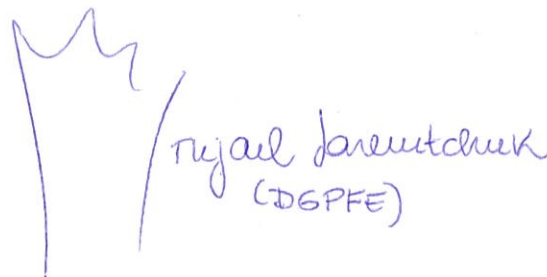 Mijail Jaremtchuk
(DGPFE)